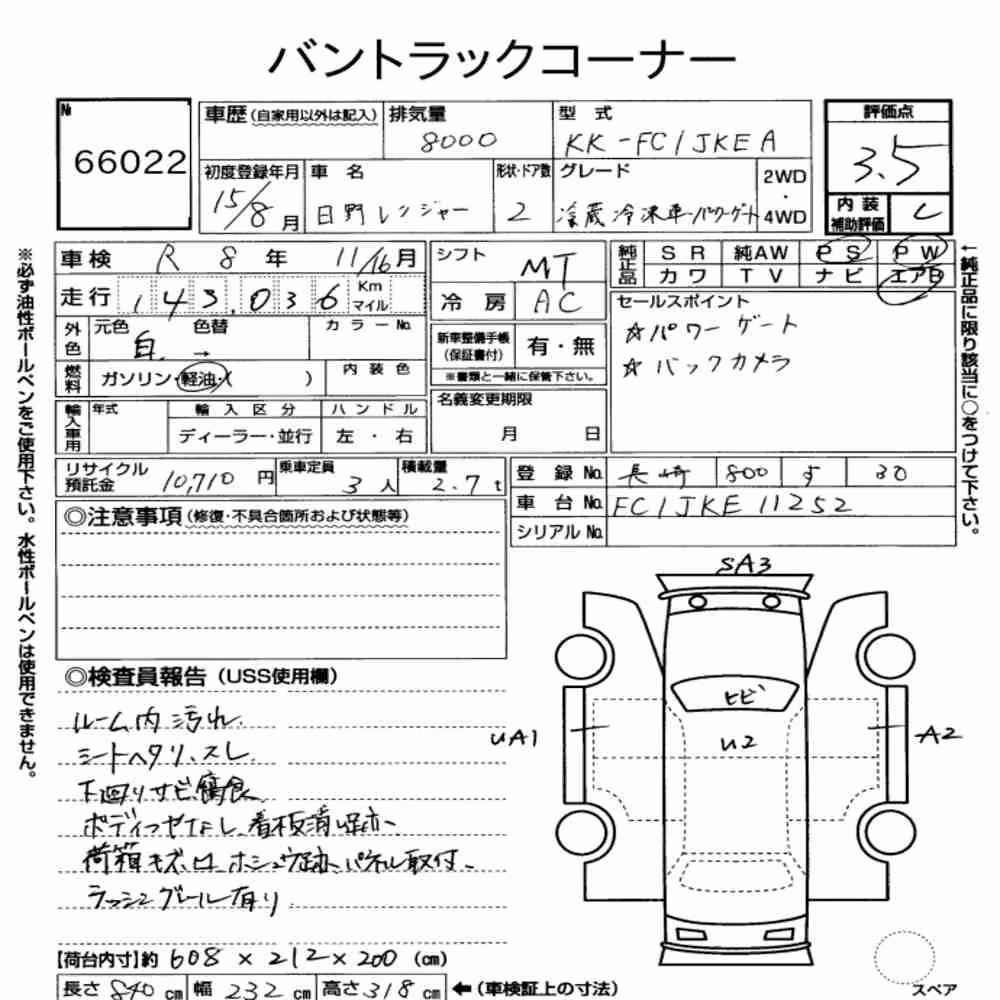 バントラックコーナー
№ 66022
車歴(自家用以外は記入) 排気量 8000 型 式 KK-FC1JKEA
評価点 3.5
初度登録年月 15/8月 車 名 日野レンジャー 形状・ドア数 2 グレード 冷蔵冷凍車・パワーゲート 2WD・4WD
内装補助評価 C
車検 R 8 年 11/16月 シフト MT
純正品 SR 純AW PS PW
カワ TV ナビ エアB
走行 143,036 Km マイル 冷房 AC
セールスポイント
☆パワーゲート
☆バックカメラ
外色 元色 白 色替 → カラーNo.
新車整備手帳(保証書付) 有・無
※書類と一緒に保管下さい。
燃料 ガソリン・軽油・( ) 内装色
名義変更期限 月 日
輸入車用 年式 輸入区分 ハンドル
ディーラー・並行 左・右
リサイクル預託金 10,710円 乗車定員 3人 積載量 2.7t
登録No. 長崎 800 す 30
車台No. FC1JKE11252
シリアルNo.
◎注意事項(修復・不具合箇所および状態等)
◎検査員報告(USS使用欄)
ルーム内汚れ.
シートヘタリ、スレ.
下廻りサビ腐食
ボディコゼなし、看板消し跡、
荷箱キズ、凹、ホシュウ跡、パネル取付、
ラッシングレール有り
【荷台内寸】約 608×212×200(cm)
長さ 840cm 幅 232cm 高さ318cm ←(車検証上の寸法)
SA3
ヒビ
UA1
U2
A2
スペア
※必ず油性ボールペンをご使用下さい。水性ボールペンは使用できません。
←純正品に限り該当に○をつけて下さい。